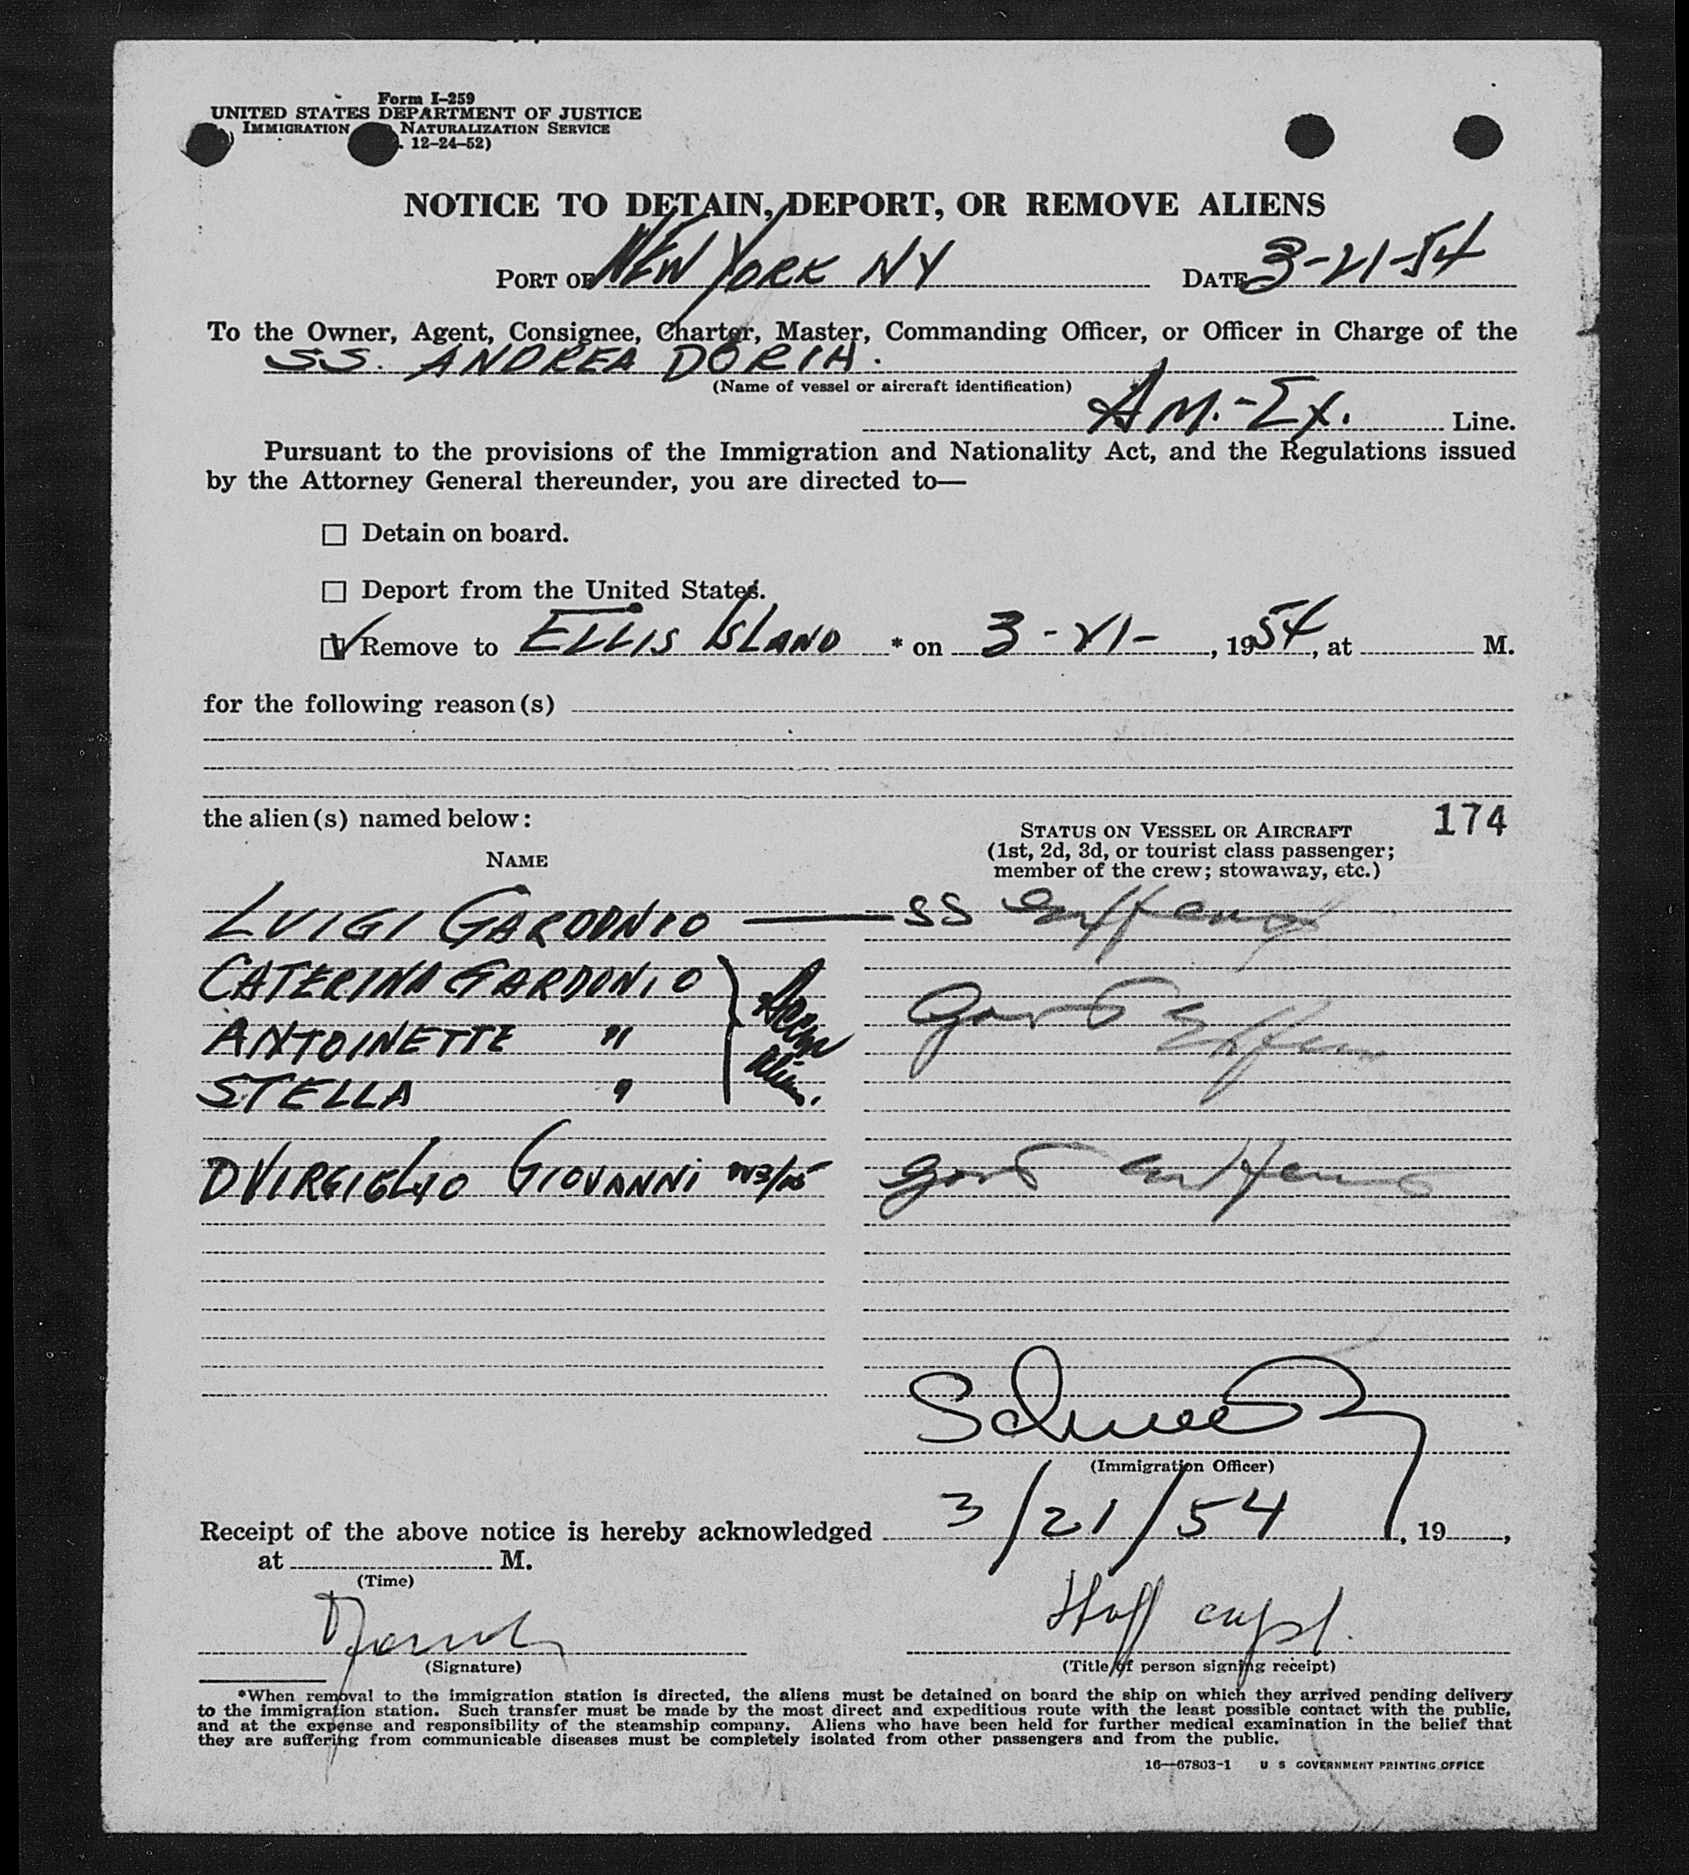 Form I-259
UNITED STATES DEPARTMENT OF JUSTICE
IMMIGRATION NATURALIZATION SERVICE
12-24-52)
NOTICE TO DETAIN, DEPORT, OR REMOVE ALIENS
PORT OF NEW YORK NY DATE 3-21-54
To the Owner, Agent, Consignee, Charter, Master, Commanding Officer, or Officer in Charge of the
SS. ANDREA DORIA.
(Name of vessel or aircraft identification)
AM.-EX. Line.
Pursuant to the provisions of the Immigration and Nationality Act, and the Regulations issued
by the Attorney General thereunder, you are directed to—
Detain on board.
Deport from the United States.
Remove to ELLIS ISLAND * on 3-21-, 1954, at M.
for the following reason(s)
the alien(s) named below:
174
STATUS ON VESSEL OR AIRCRAFT
(1st, 2d, 3d, or tourist class passenger;
member of the crew; stowaway, etc.)
NAME
LUIGI GARDONIO — SS
CATERINA GARDONIO
ANTOINETTE "
STELLA "
DVIRGIGLIO GIOVANNI
(Immigration Officer)
Receipt of the above notice is hereby acknowledged 3/21/54, 19,
at M.
(Time)
Staff capt.
(Signature) (Title of person signing receipt)
*When removal to the immigration station is directed, the aliens must be detained on board the ship on which they arrived pending delivery
to the immigration station. Such transfer must be made by the most direct and expeditious route with the least possible contact with the public,
and at the expense and responsibility of the steamship company. Aliens who have been held for further medical examination in the belief that
they are suffering from communicable diseases must be completely isolated from other passengers and from the public.
16—67803-1 U S GOVERNMENT PRINTING OFFICE